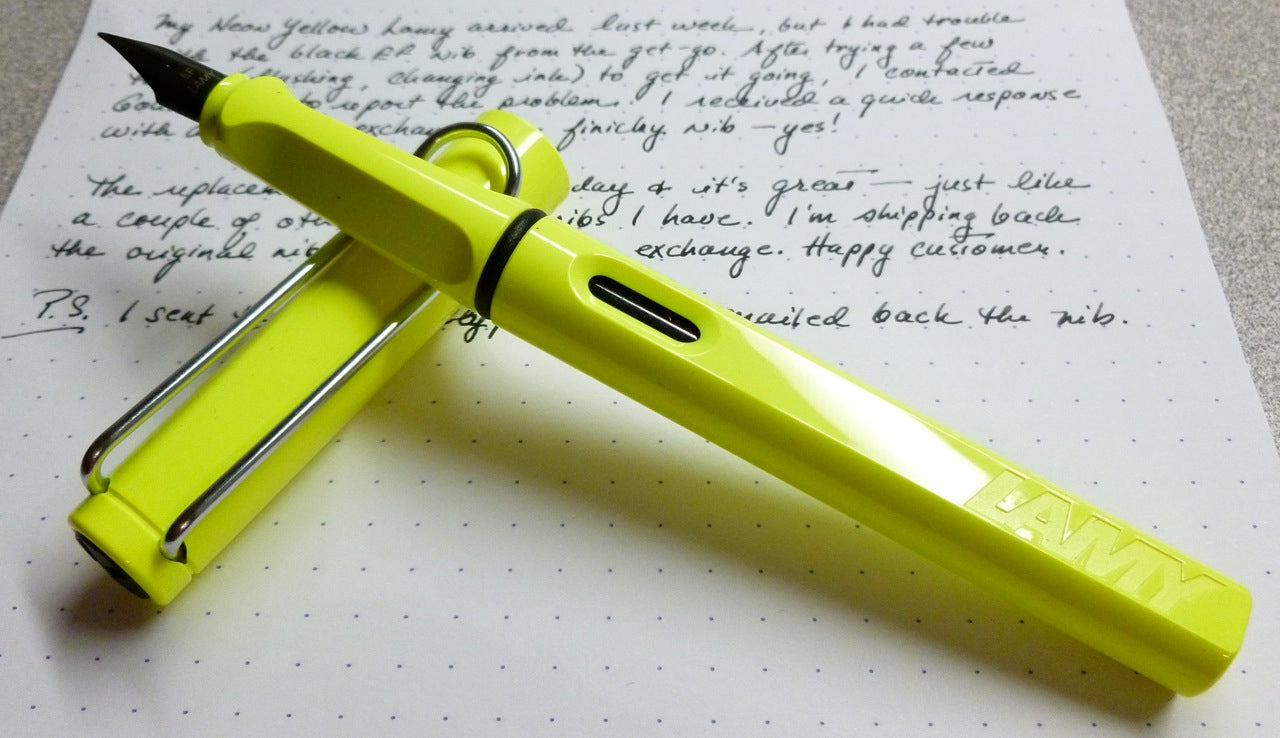 My Neon Yellow Lamy arrived last week, but I had trouble
the black EF nib from the get-go. After trying a few
flushing, changing ink) to get it going, I contacted
to report the problem. I received a quick response
with exchan finicky nib — yes!
The replacem day & it's great — just like
a couple of oth nibs I have. I'm shipping back
the original nib exchange. Happy customer.
P.S. I sent mailed back the nib.
LAMY
LAMY